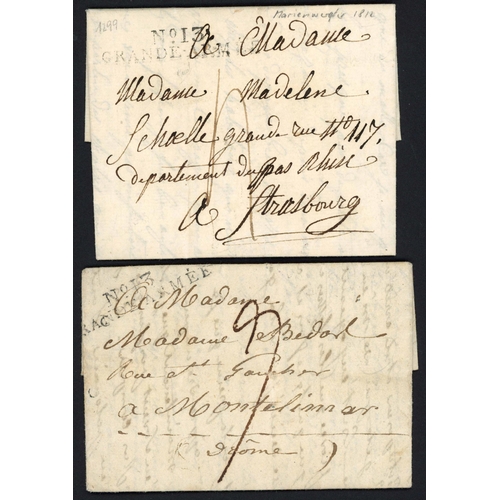 1299
Marienwerder 1812
No. 13
GRANDE-ARM
A Madame
Madame Madelene
Schoelle grande rue No 117.
departement du bas Rhin
A Strasbourg
No. 13
GRANDE ARMÉE
A Madame
Madame Bedort
Rue St Gaucher
a Montelimar
Drôme